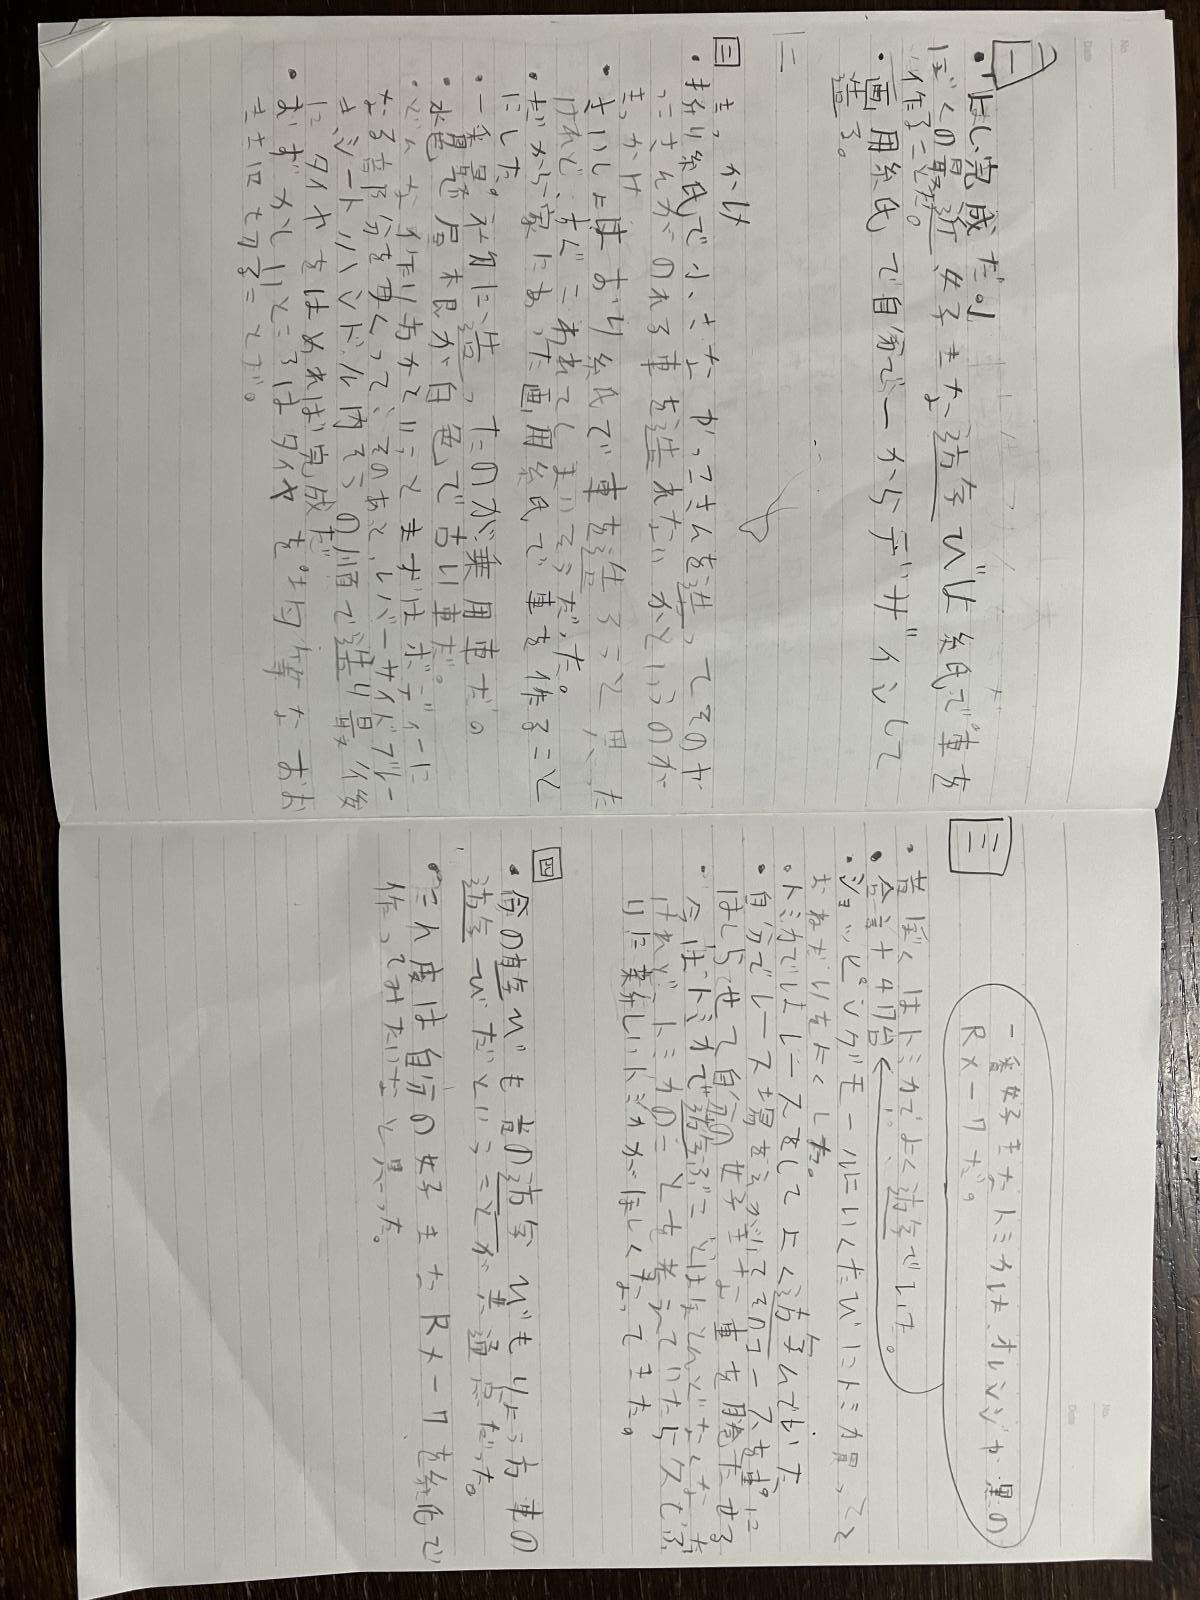 一
・よし、完成だ!!
ぼくの最近、好きな遊びは紙で車を
作ることだ。
・画用紙で自分で一からデザインして
造る。
二
三 きっかけ
・折り紙で小さな よ かっこさんを造ってそのか
っこさんがのれる車を造れないかというのが
きっかけ
・さいしょはおり紙で車を造ろうと思った
けれど、すぐこわれてしまいそうだった。
・だから家にあった画用紙で車を作ること
にした
・一番最初に造ったのが乗用車だ
水色 屋根が白色で古い車だ。
・どんな作り方かというとまずはボディに
なる部分を 、そのあと、レバーサイドブレー
キシートハンドル内そうの順で造り最後
にタイヤをはめれば完成だ
・おずかしいところはタイヤを均等なおお
きさにすることです。
三
一番好きなトミカは、オレンジか黒の
RX-7だ。
・昔ぼくはトミカでよく遊んでいた。
・合計+47台
・ショッピングモールにいくたびにトミカ買ってと
おねだりをよくした。
・トミカではレースをしてよく遊んでいた
・自分でレース場をえがいてそのコースを
はしらせて自分の好きな車を勝たせる
・今はトミカで遊ぶことはほとんどなくなった
けれどトミカのことを考えていたらクスでぶ
りに新しいトミカがほしくなってきた。
四
・今の遊びも昔の遊びもりょう方車の
遊びだということが共通点だった。
・こん度は自分の好きなRX-7を紙で
作ってみたいなと思った。